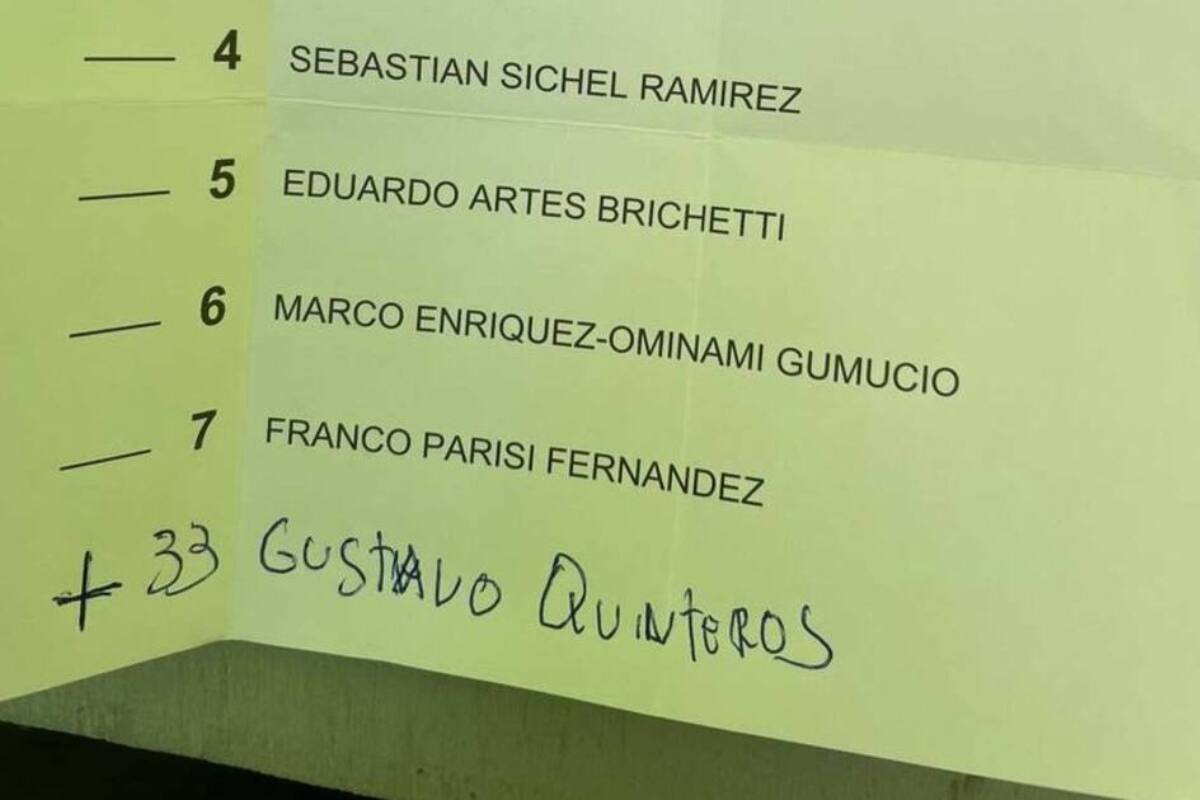 4 SEBASTIAN SICHEL RAMIREZ
5 EDUARDO ARTES BRICHETTI
6 MARCO ENRIQUEZ-OMINAMI GUMUCIO
7 FRANCO PARISI FERNANDEZ
+ 33 GUSTAVO QUINTEROS